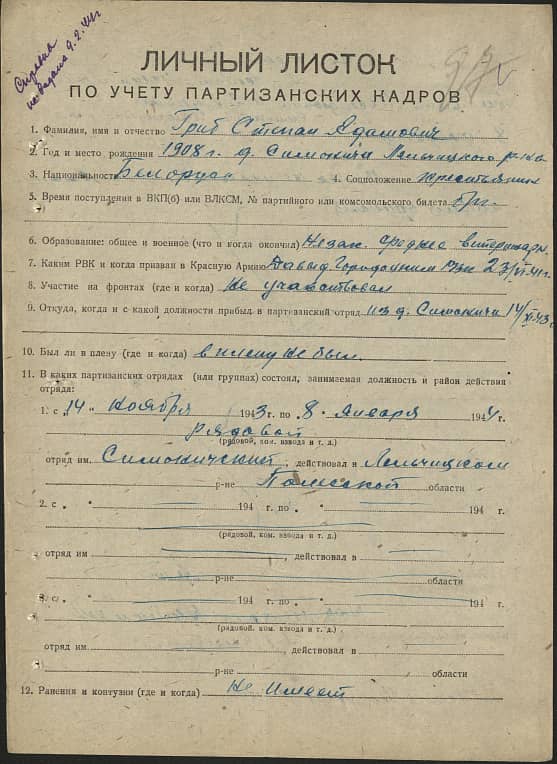 Справка
не выдана 9.2.44г
ЛИЧНЫЙ ЛИСТОК
ПО УЧЕТУ ПАРТИЗАНСКИХ КАДРОВ
1. Фамилия, имя и отчество Гриб Степан Адамович
2. Год и место рождения 1908 г. д. Симоничи Лельчицкого р-на
3. Национальность Белорус 4. Соцположение крестьянин
5. Время поступления в ВКП(б) или ВЛКСМ, № партийного или комсомольского билета б/п.
6. Образование: общее и военное (что и когда окончил) Незак. среднее
7. Каким РВК и когда призван в Красную Армию Давыд. Городокским РВК 23/VI-41г.
8. Участие на фронтах (где и когда) Не участвовал
9. Откуда, когда и с какой должности прибыл в партизанский отряд из д. Симоничи 14/XI-43г.
10. Был ли в плену (где и когда) в плену не был.
11. В каких партизанских отрядах (или группах) состоял, занимаемая должность и район действия
отряда:
1. с „14" ноября 1943 г. по „8" января 1944 г.
рядовой
(рядовой, ком. взвода и т. д.)
отряд им. Симоничский, действовал в Лельчицком
р-не Полесской области
2. с „ " 194 г. по „ " 194 г.
(рядовой, ком. взвода и т. д.)
отряд им. , действовал в
р-не области
3. с „ " 194 г. по „ " 194 г.
(рядовой, ком. взвода и т. д.)
отряд им. , действовал в
р-не области
12. Ранения и контузии (где и когда) Не имеет